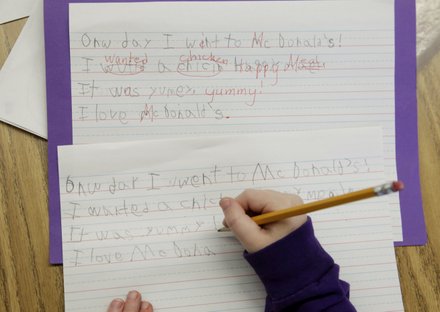 Onw day I went to Mc Donald's!
wanted chicken
I a Happy Meal
It was yummy!
I love McDonald's.
Onw day I went to McDonald's!
I wanted a
It was yummy
I love McDona